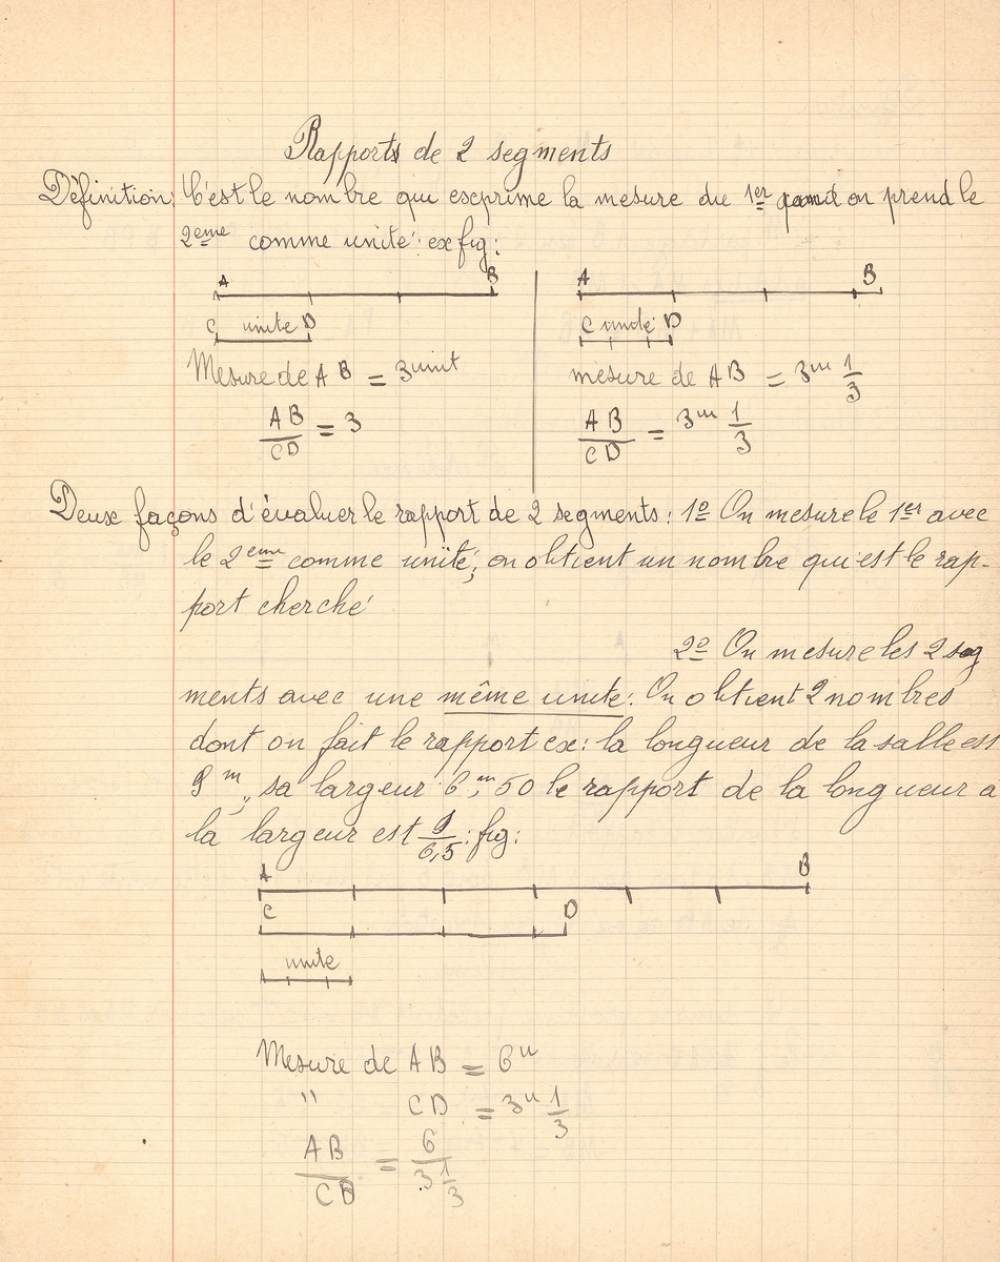 Rapports de 2 segments
Définition: C'est le nombre qui exprime la mesure du 1er quand on prend le
2eme comme unité: ex fig:
A B
C unité D
Mesure de AB = 3 unit
AB/CD = 3
A B
C unité D
mesure de AB = 3u 1/3
AB/CD = 3u 1/3
Deux façons d'évaluer le rapport de 2 segments: 1o On mesure le 1er avec
le 2eme comme unité; on obtient un nombre qui est le rap-
port cherché
2o On mesure les 2 seg
ments avec une même unité: On obtient 2 nombres
dont on fait le rapport ex: la longueur de la salle est
9m, sa largeur 6m,50 le rapport de la longueur a
la largeur est 9/6,5: fig:
A B
C D
unité
Mesure de AB = 6u
" CD = 3u 1/3
AB/CD = 6/3 1/3